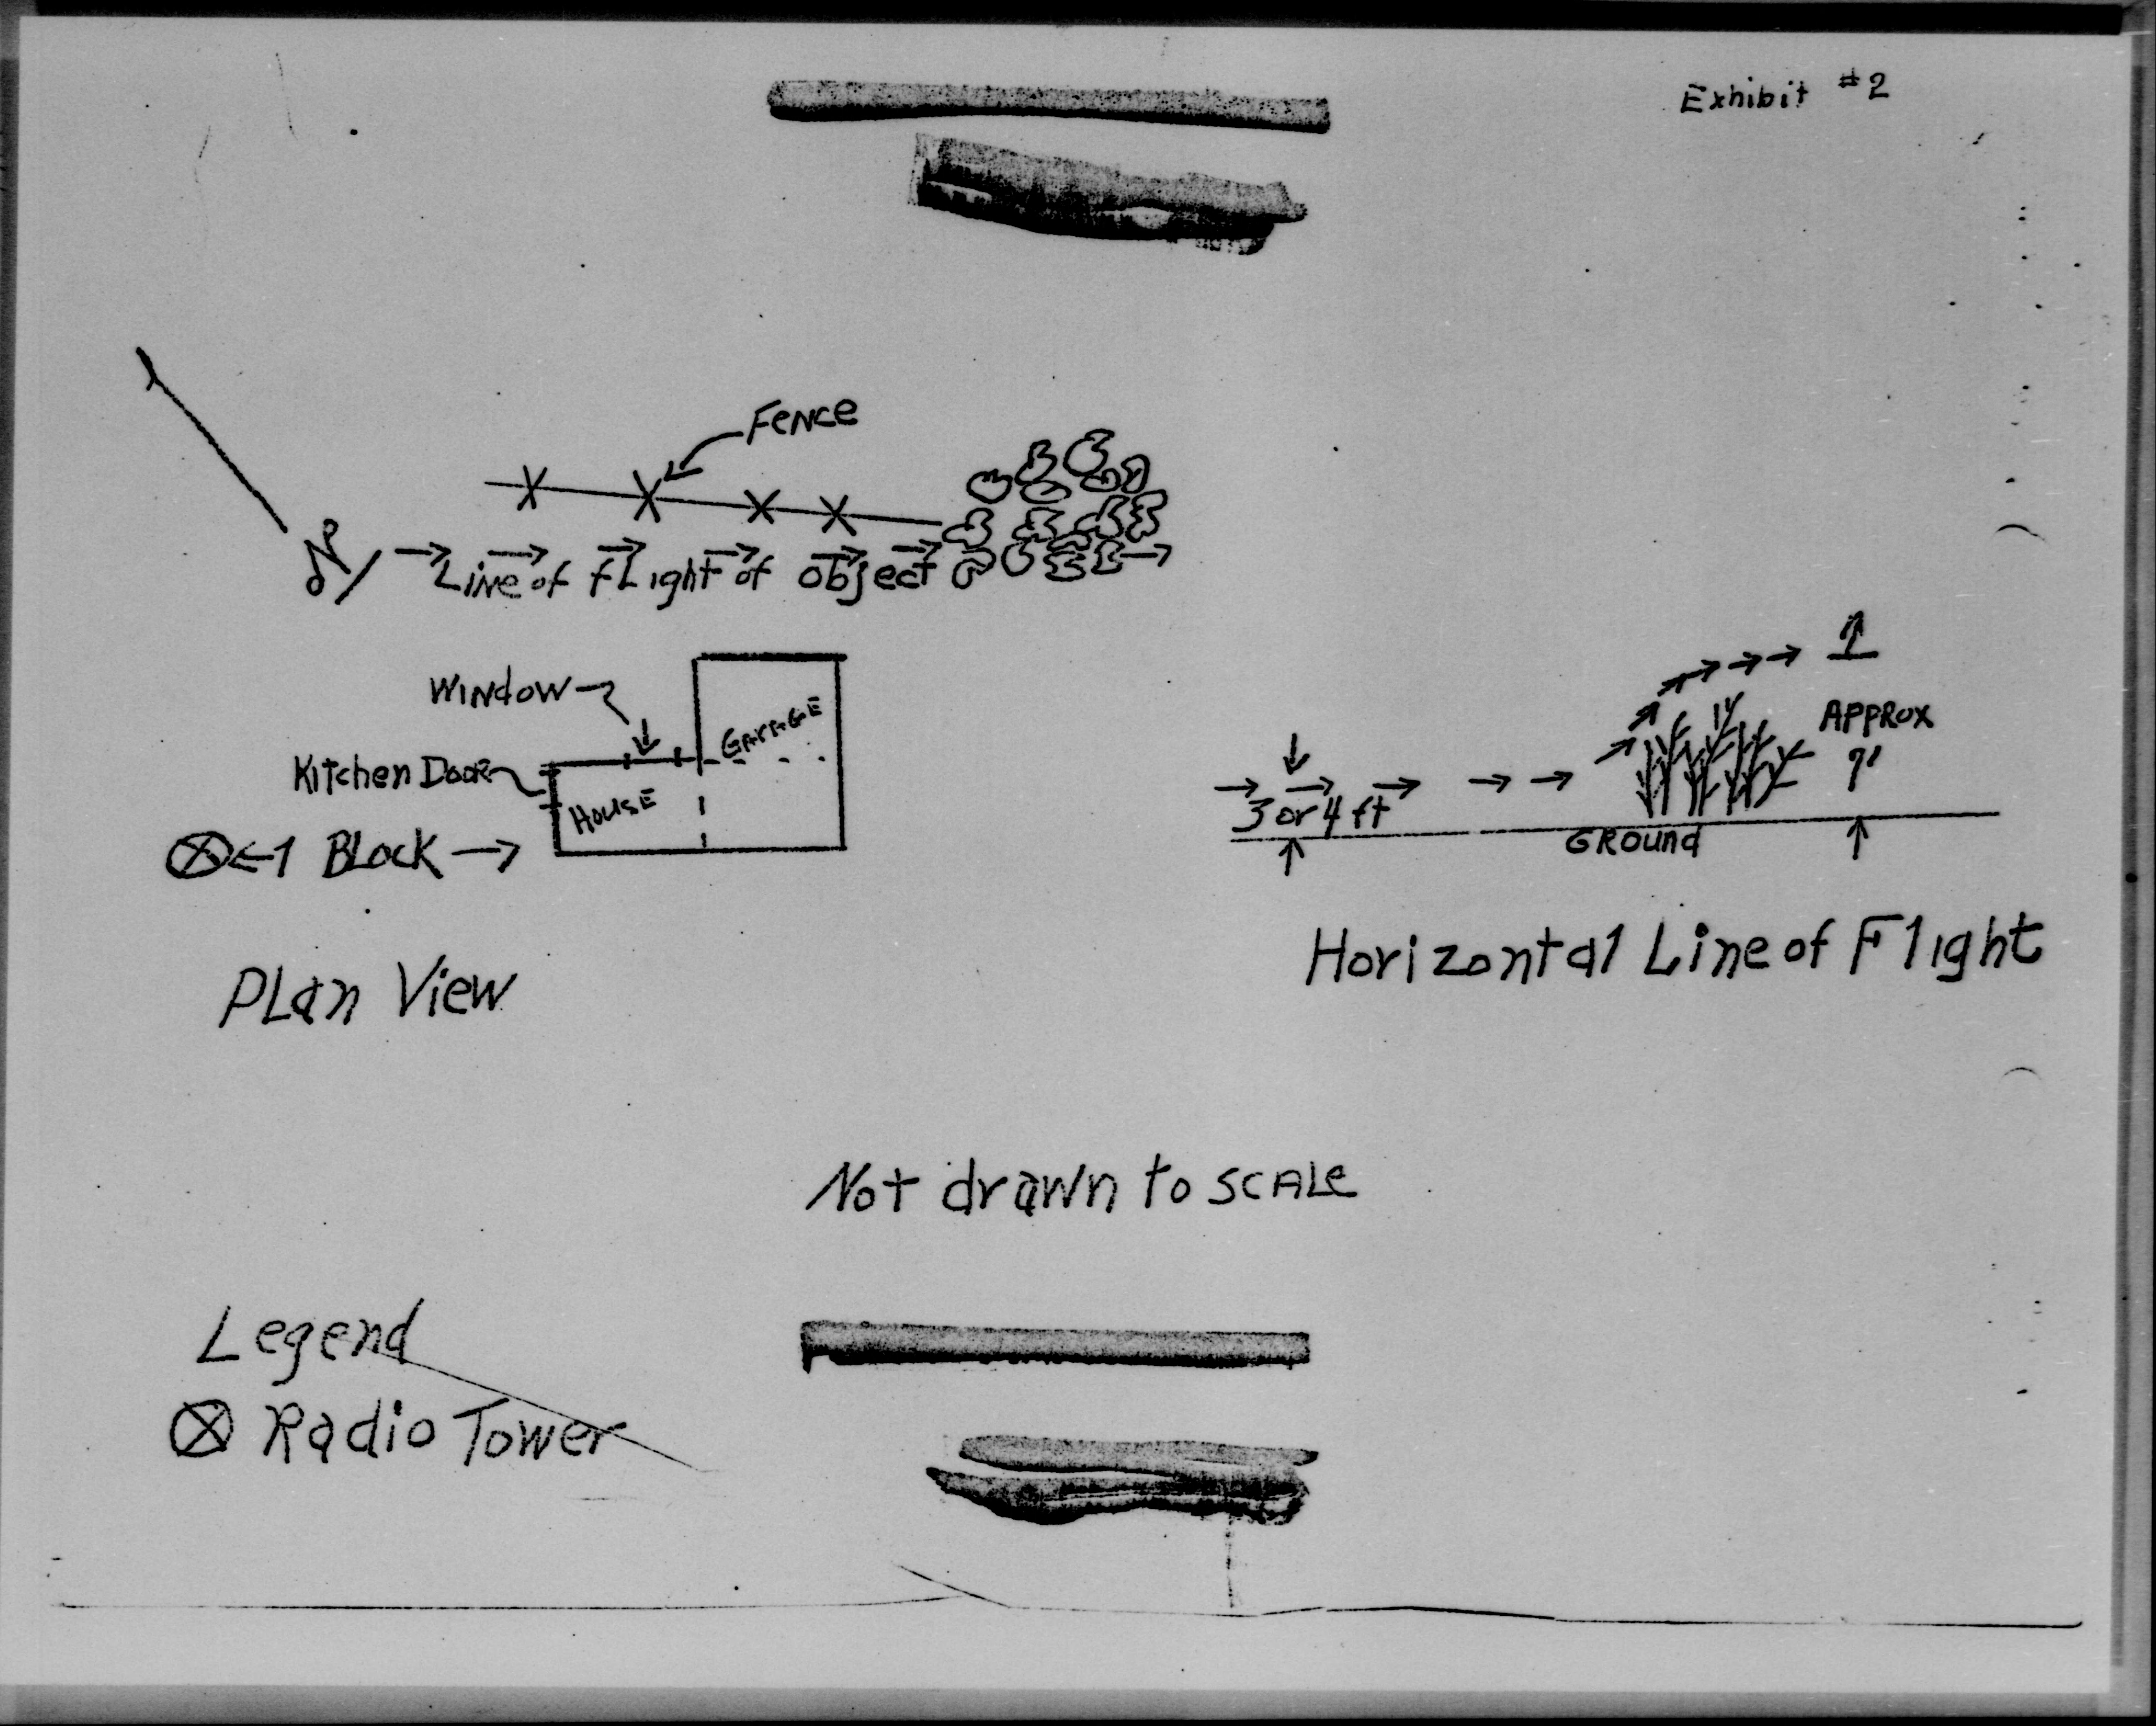 Exhibit #2
Fence
N
Line of fLight of object
Window
GArAGE
Kitchen Door
HousE
1 BLock
PLan View
APPROX
9'
3 or 4 ft
GRound
Horizontal Line of Flight
Not drawn to SCALe
Legend
Radio Tower